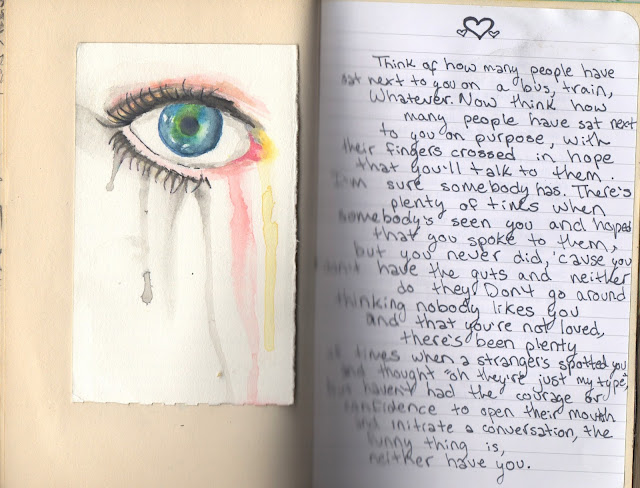 Think of how many people have
sat next to you on a bus, train,
Whatever. Now think how
many people have sat next
to you on purpose, with
their fingers crossed in hope
that you'll talk to them.
I'm sure somebody has. There's
plenty of times when
somebody's seen you and hoped
that you spoke to them,
but you never did, 'cause you
didn't have the guts and neither
do they. Don't go around
thinking nobody likes you
and that you're not loved,
there's been plenty
of times when a stranger's spotted you
and thought "oh they're just my type",
but haven't had the courage or
confidence to open their mouth
and initrate a conversation, the
funny thing is,
neither have you.